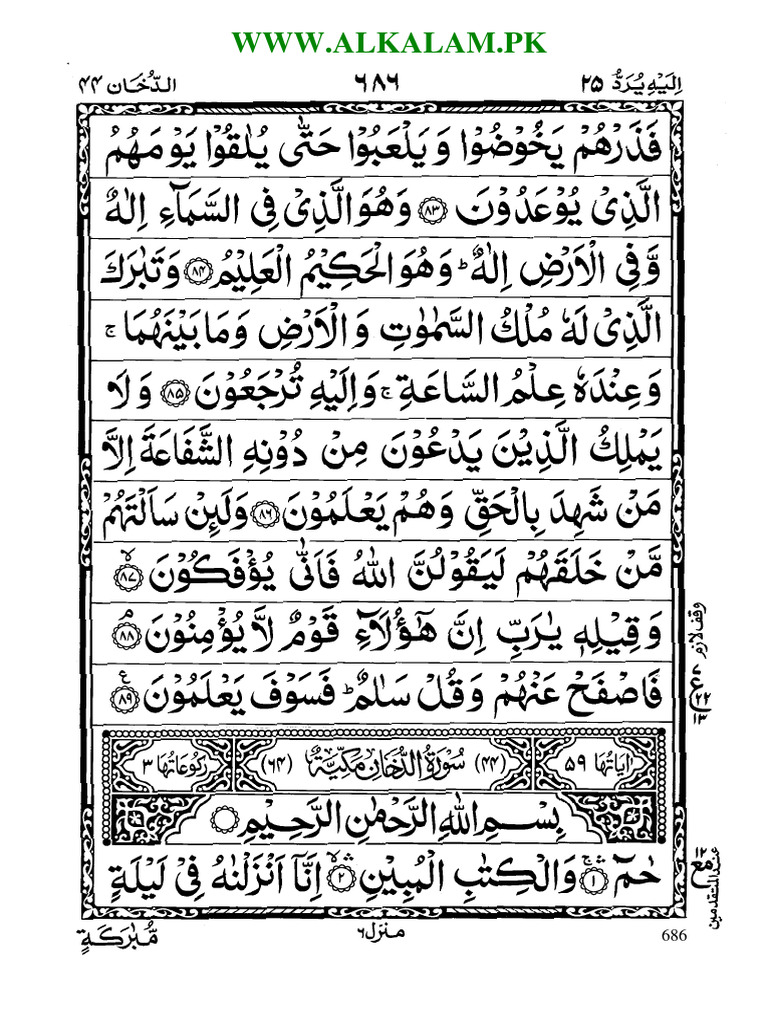 WWW.ALKALAM.PK
اِلَيْهِ يُرَدُّ ۲۵
٦٨٦
الدُّخَان ۴۴
فَذَرْهُمْ يَخُوْضُوْا وَيَلْعَبُوْا حَتّٰى يُلٰقُوْا يَوْمَهُمُ
الَّذِىْ يُوْعَدُوْنَ ۸۳ وَهُوَ الَّذِىْ فِى السَّمَآءِ اِلٰهٌ
وَّفِى الْاَرْضِ اِلٰهٌ ؕ وَهُوَ الْحَكِيْمُ الْعَلِيْمُ ۸۴ وَتَبٰرَكَ
الَّذِىْ لَهٗ مُلْكُ السَّمٰوٰتِ وَالْاَرْضِ وَمَا بَيْنَهُمَا ۚ
وَعِنْدَهٗ عِلْمُ السَّاعَةِ ۚ وَاِلَيْهِ تُرْجَعُوْنَ ۸۵ وَلَا
يَمْلِكُ الَّذِيْنَ يَدْعُوْنَ مِنْ دُوْنِهِ الشَّفَاعَةَ اِلَّا
مَنْ شَهِدَ بِالْحَقِّ وَهُمْ يَعْلَمُوْنَ ۸۶ وَلَئِنْ سَاَلْتَهُمْ
مَّنْ خَلَقَهُمْ لَيَقُوْلُنَّ اللّٰهُ فَاَنّٰى يُؤْفَكُوْنَ ۙ ۸۷
وَقِيْلِهٖ يٰرَبِّ اِنَّ هٰٓؤُلَآءِ قَوْمٌ لَّا يُؤْمِنُوْنَ ۘ ۸۸
وقف لازم
فَاصْفَحْ عَنْهُمْ وَقُلْ سَلٰمٌ ؕ فَسَوْفَ يَعْلَمُوْنَ ع ۸۹
ع ۲۲ ۱۳
اٰيَاتُهَا ۵۹
(۴۴) سُوْرَةُ الدُّخَانِ مَكِّيَّةٌ (۶۴)
رُكُوْعَاتُهَا ۳
بِسْمِ اللّٰهِ الرَّحْمٰنِ الرَّحِيْمِ
حٰمٓ ۚ ۱ وَالْكِتٰبِ الْمُبِيْنِ ۙ ۲ اِنَّآ اَنْزَلْنٰهُ فِىْ لَيْلَةٍ
مع ۱۲ عند المتقدمين
مُّبٰرَكَةٍ
منزل ۶
686